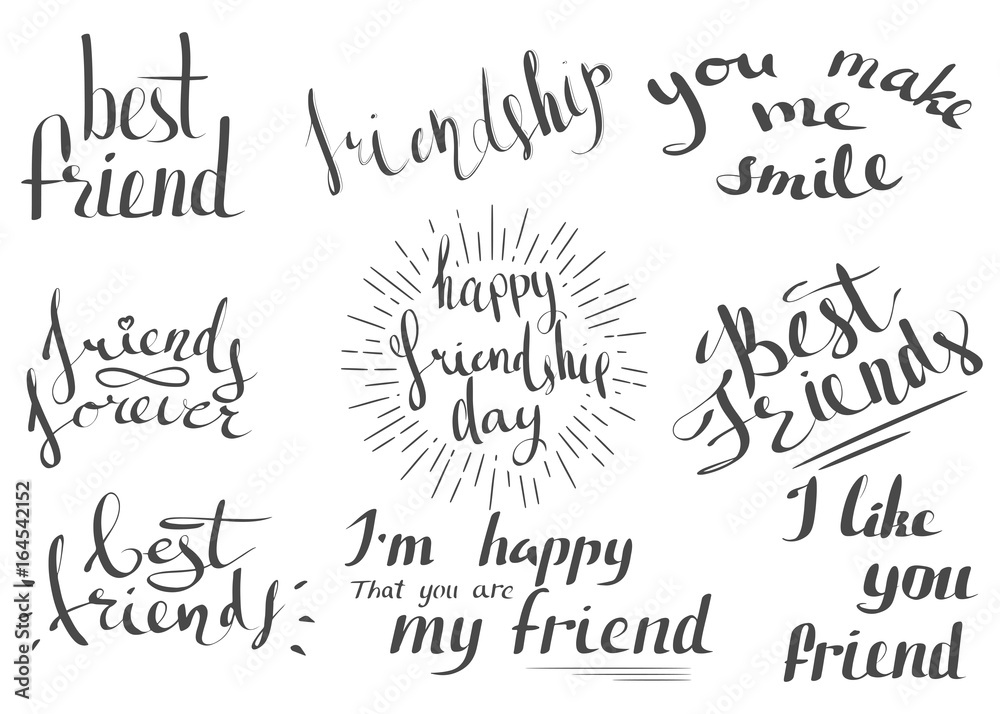 best
friend
friendship
you make
me
smile
friends
forever
happy
friendship
day
Best
Friends
best
friends
I'm happy
That you are
my friend
I like
you
friend
Adobe Stock | #164542152